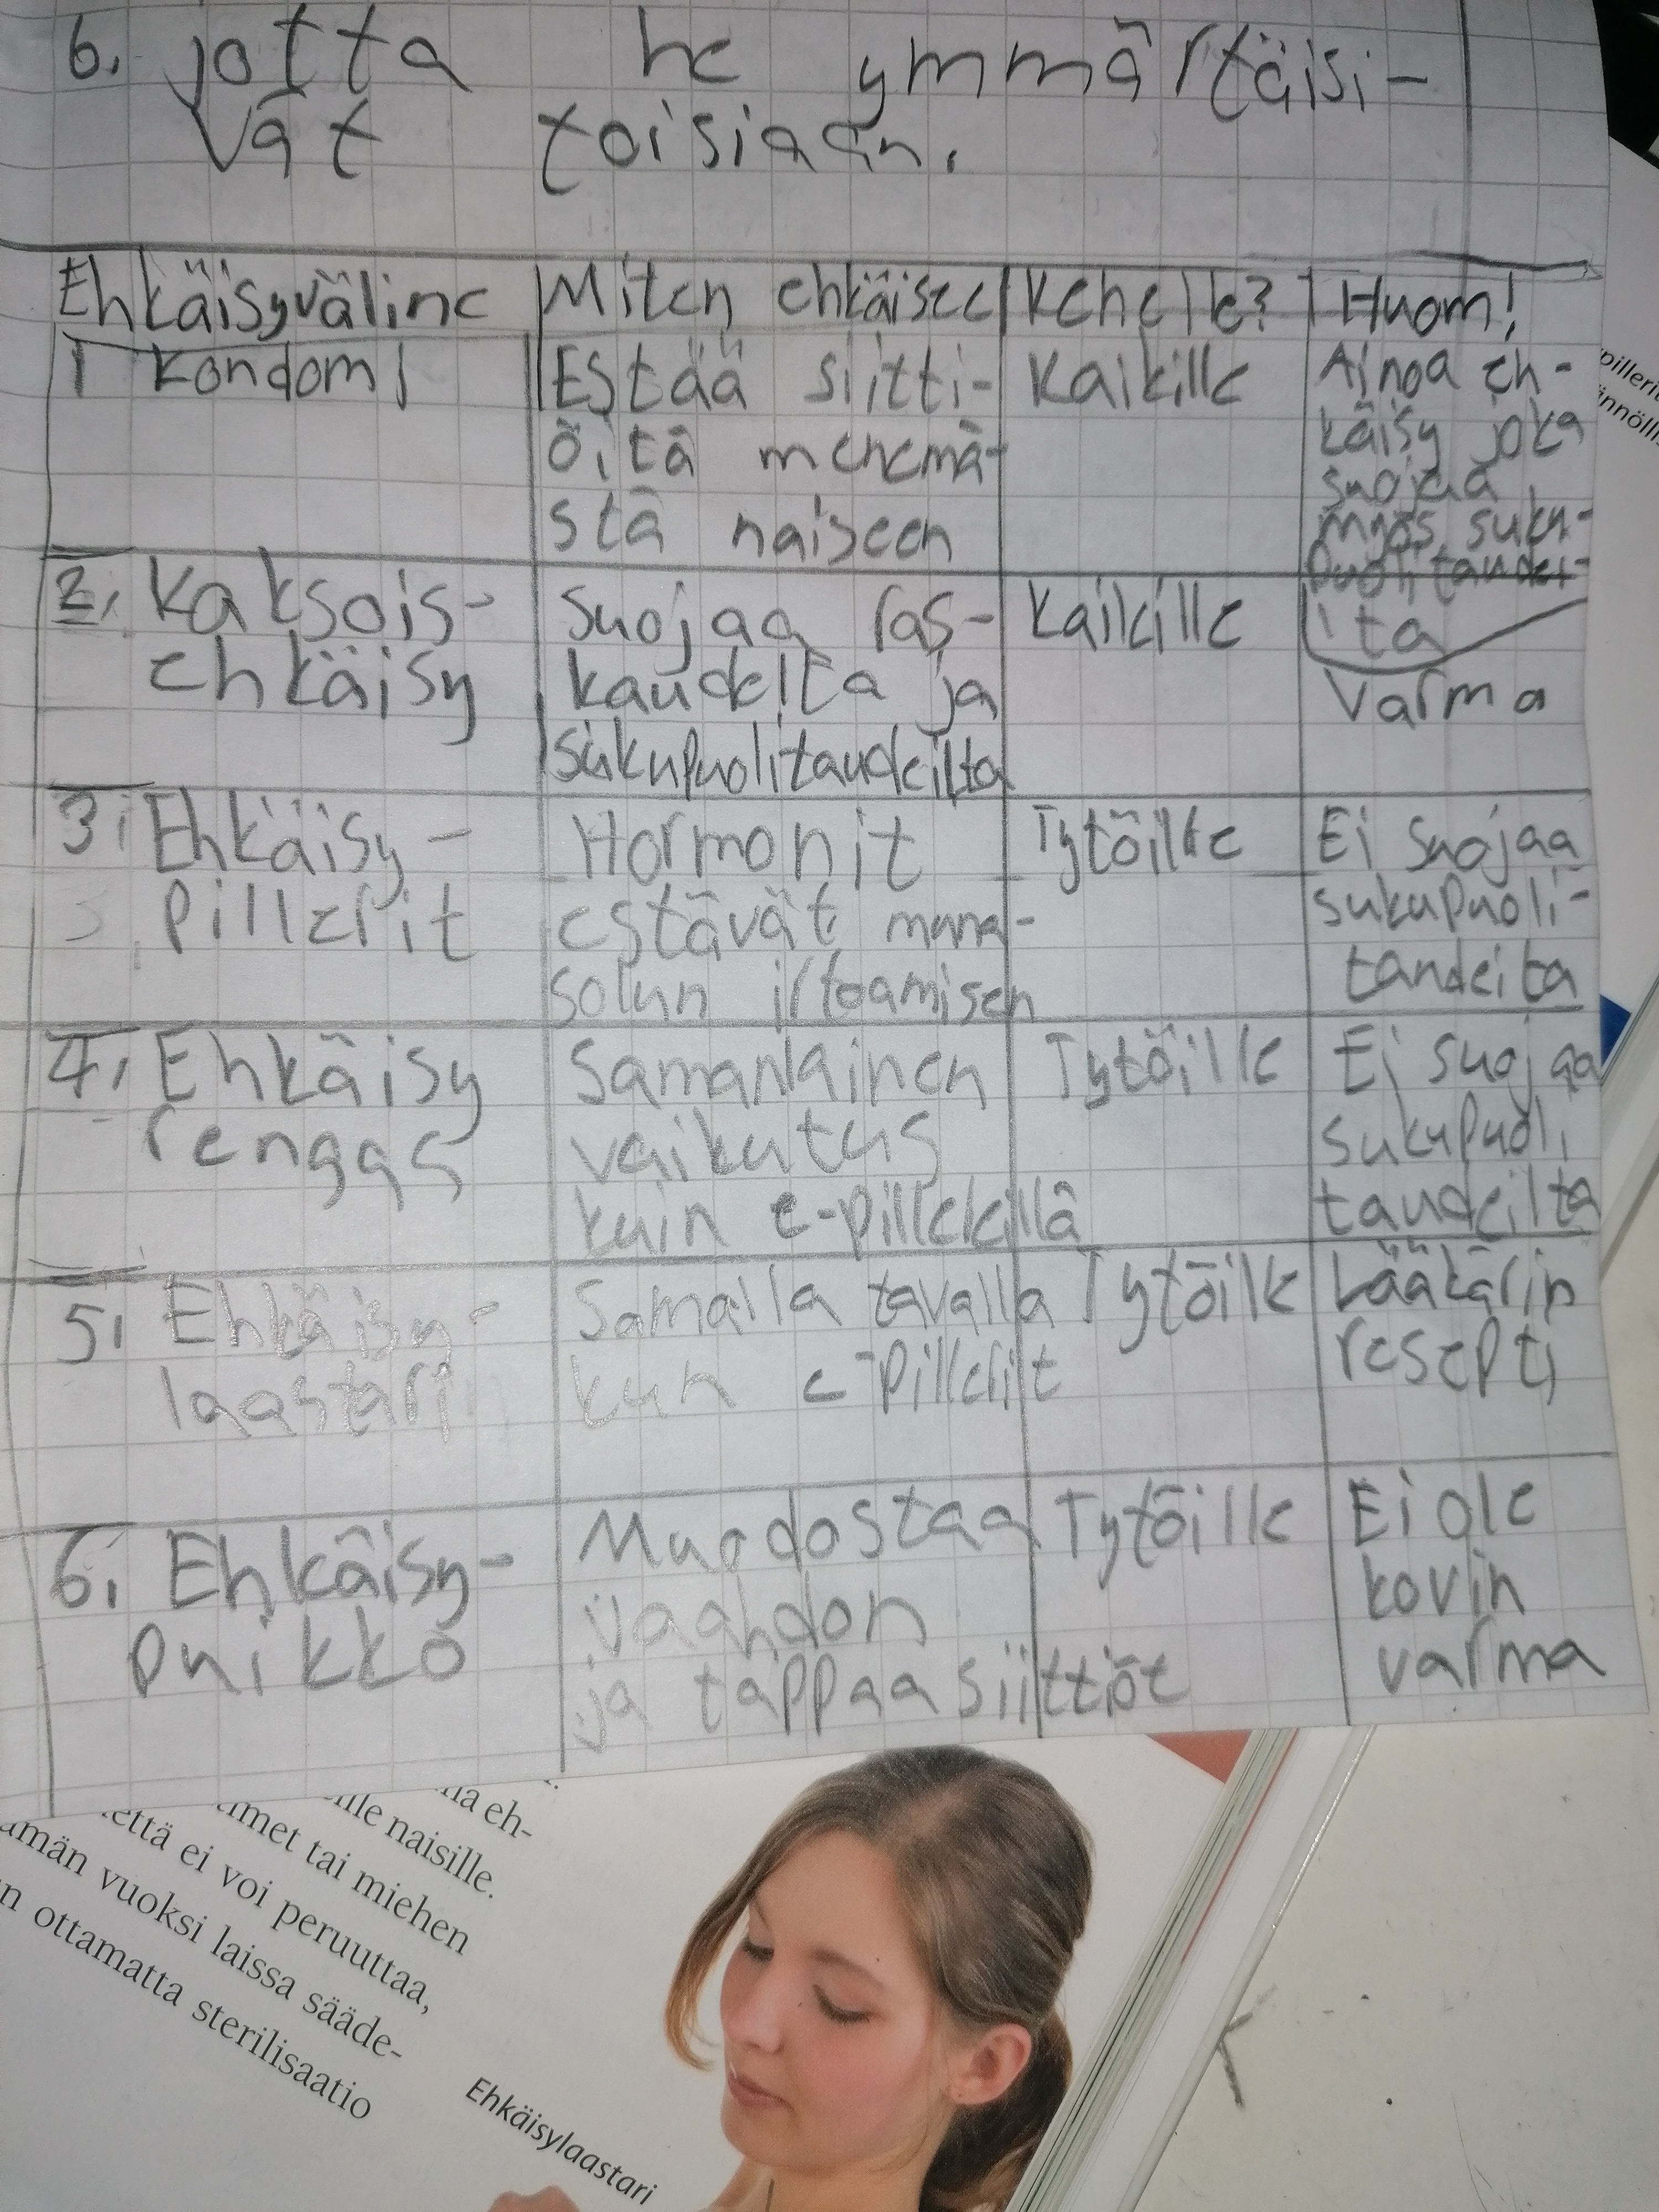 6. jotta he ymmärtäisi-
vät toisiaan.
Ehkäisyväline Miten ehkäisee Kenelle? Huom!
1 Kondomi
Estää siitti-
öitä menemä-
stä naiseen
Kaikille
Ainoa eh-
käisy joka
suojaa
myös suku-
puolitaudei-
ita
2. Kaksois-
ehkäisy
Suojaa ras-
kaudelta ja
sukupuolitaudeilta
Kaikille
Varma
3. Ehkäisy-
pillerit
Hormonit
estävät muna-
solun irtoamisen
Tytöille
Ei suojaa
sukupuoli-
taudeita
4. Ehkäisy
rengas
Samanlainen
vaikutus
kuin e-pillekillä
Tytöille
Ei suojaa
sukupuoli
taudeilta
5. Ehkäisy-
laastari
Samalla tavalla
kun e-pillerit
Tytöille
Lääkärin
resepti
6. Ehkäisy-
puikko
Muodostaa
vaahdon
ja tappaa siittiöt
Tytöille
Ei ole
kovin
varma
pilleri
ännölli
lla eh-
ille naisille.
imet tai miehen
että ei voi peruuttaa,
ämän vuoksi laissa sääde-
n ottamatta sterilisaatio
Ehkäisylaastari